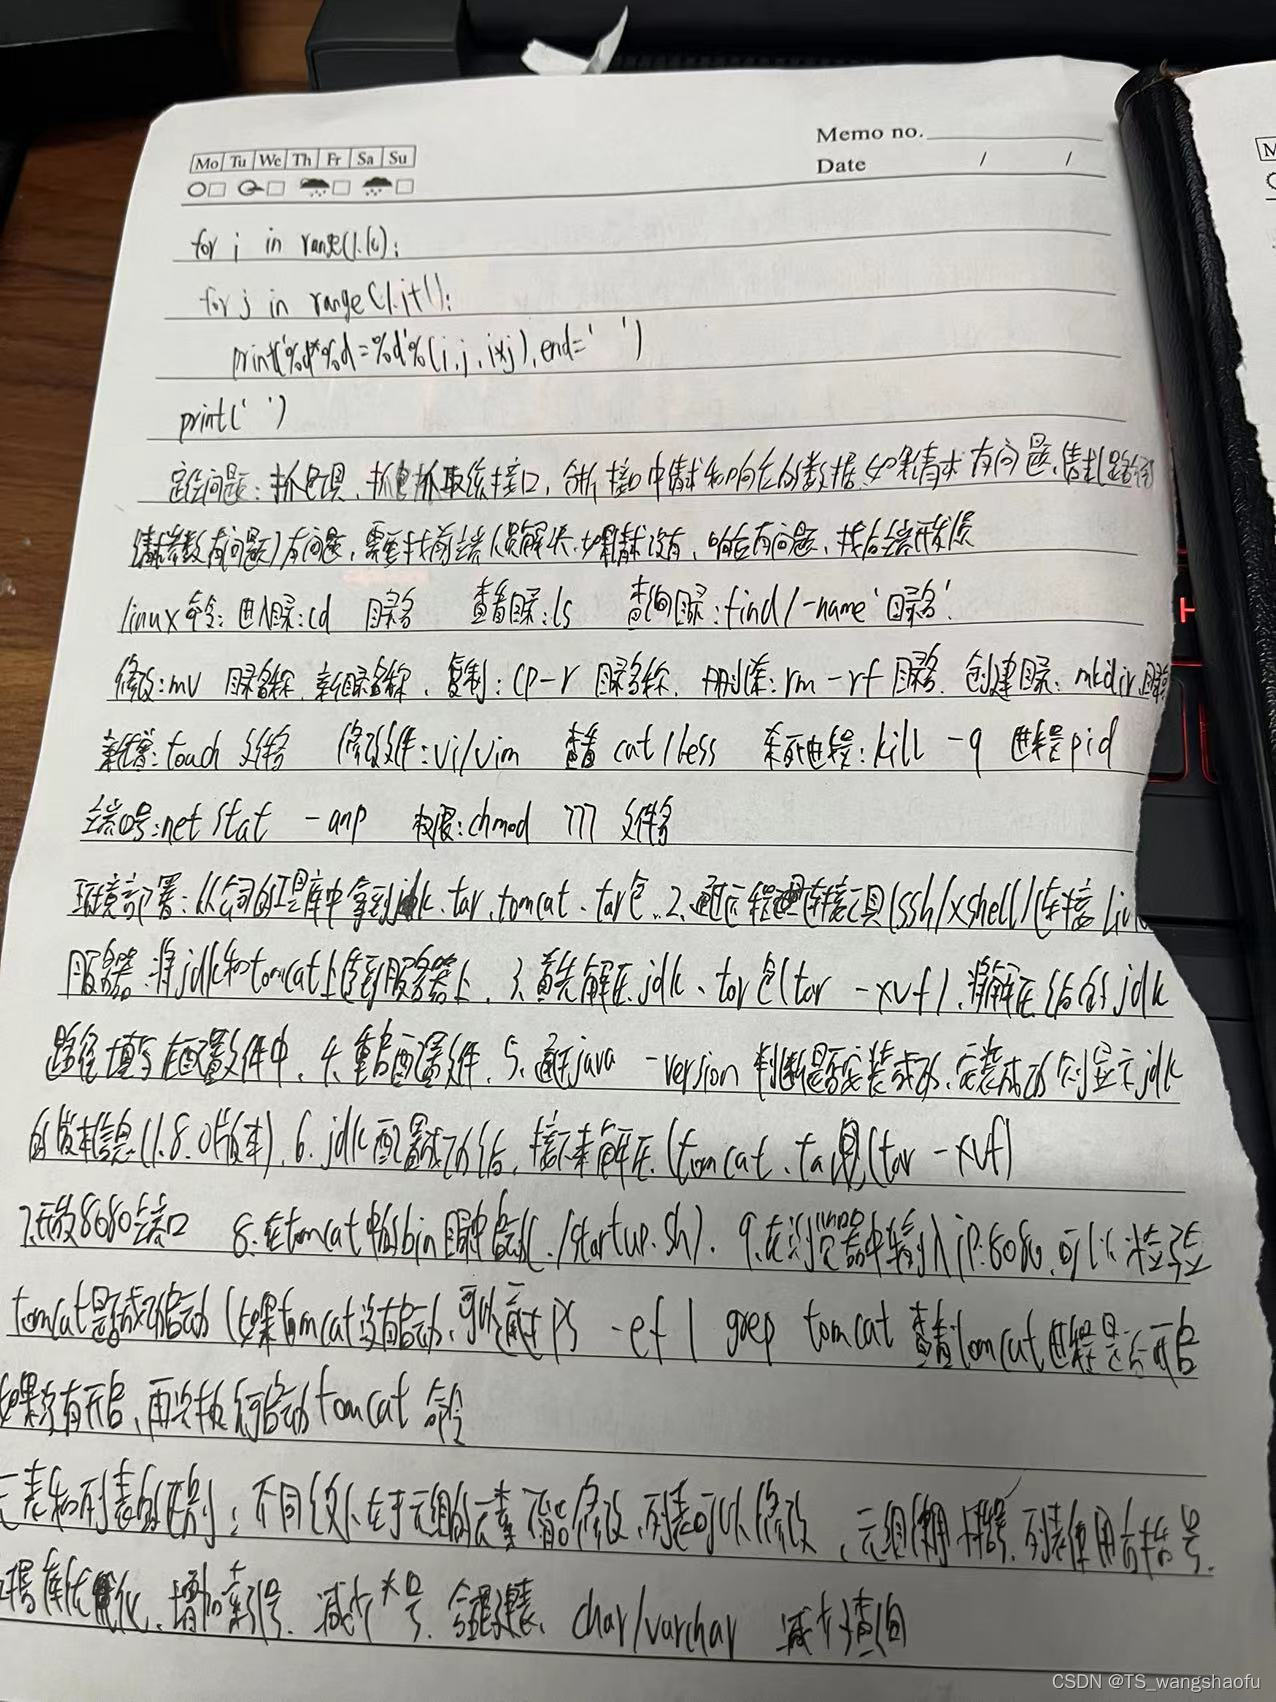 Mo Tu We Th Fr Sa Su
Memo no.
Date / /
for i in range(1.10):
for j in range(1.i+1):
print('%d*%d=%d'%(i,j,i*j),end=' ')
print(' ')
定位问题:抓包工具,抓包抓取该接口,分析接口中请求和响应的数据,如果请求有问题,(
请求参数有问题)有问题,需要找前端人员解决,如果请求没有,响应有问题,找后端开发人员
linux命令:进入目录:cd 目录名 查看目录:ls 查询目录:find/-name'目录名'
修改:mv 目录名称 新目录名称、复制:cp-r 目录名称、删除:rm-rf 目录名 创建目录:mkdir 目录名
新增:touch 文件名 修改文件:vi/vim 查看 cat/less 杀死进程:kill -9 进程pid
端口号:netstat -anp 权限:chmod 777 文件名
环境部署:从公司的工具库中拿到jdk.tar、tomcat.tar包..2、通过远程连接工具(ssh/xshell)连接Linux
服务器,将jdk和tomcat上传到服务器上、3、首先解压jdk、tar包(tar -xvf),将解压后的jdk
路径填写在配置文件中、4、重启配置文件、5、通过java -version 判断是否安装成功,安装成功则显示jdk
的版本信息(1.8.0版本)、6、jdk配置成功后,接下来解压(tomcat、tar包(tar -xvf)
7.开放8080端口 8.在tomcat中的bin目录中启动(./startup.sh). 9.在浏览器中输入ip:8080,可以检验
tomcat是否成功启动(如果tomcat没有启动,可以通过ps -ef | grep tomcat 查看tomcat进程是否开启
如果没有开启、再次执行启动tomcat 命令
元表和列表的区别:不同点在于元组的元素不能修改,列表可以修改、元组使用小括号,列表使用方括号.
数据库优化,增加索引号,减少*号,创建表、char/varchar 减少子查询
CSDN @TS_wangshaofu